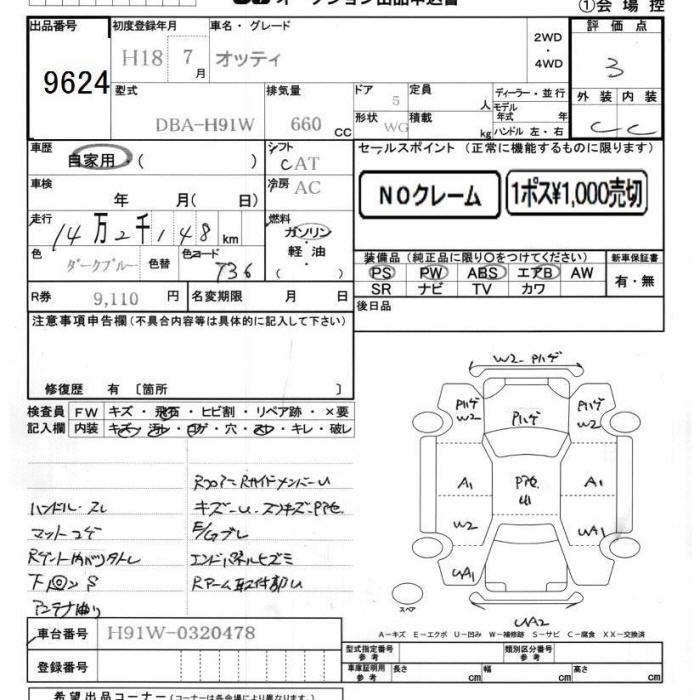 オークション出品申込書
①会場控
出品番号
9624
初度登録年月
H18 7月
車名・グレード
オッティ
2WD
・
4WD
評価点
3
型式
DBA-H91W
排気量
660 CC
ドア
5
定員
人
ディーラー・並行
モデル年式 年
形状
WG
積載
kg
ハンドル 左・右
外装 内装
C C
車歴
自家用・( )
シフト
CAT
セールスポイント (正常に機能するものに限ります)
NOクレーム
1ポス¥1,000売切
車検
年 月( 日)
冷房
AC
走行
14万2千148km
燃料
ガソリン
軽油
( )
色
ダークブルー
色替
色コード
736
装備品 (純正品に限り○をつけてください)
新車保証書
PS PW ABS エアB AW
SR ナビ TV カワ
有・無
R券 9,110 円
名変期限 月 日
後日品
注意事項申告欄 (不具合内容等は具体的に記入して下さい)
修復歴 有 〔箇所 〕
検査員
記入欄
FW キズ・飛石・ヒビ割・リペア跡・×要
内装 キズ・汚レ・コゲ・穴・スレ・キレ・破レ
ハンドル・スレ
マットコゲ
下回りS
アンテナ曲り
RコアニRサイドメンバーU
E/Gブレ
エンドパネルヒズミ
Rアーム取付部U
W2-Pハゲ
Pハゲ
W2
Pハゲ
Pハゲ
W2
A1
A1
W2
UA1
UA1
UA2
スペア
A-キズ E-エクボ U-凹み W-補修跡 S-サビ C-腐食 XX-交換済
車台番号
H91W-0320478
登録番号
型式指定番号
参考
類別区分番号
参考
車庫証明用
参考
長さ cm
幅 cm
高さ cm
希望出品コーナー (コーナーは各会場により異なります。)